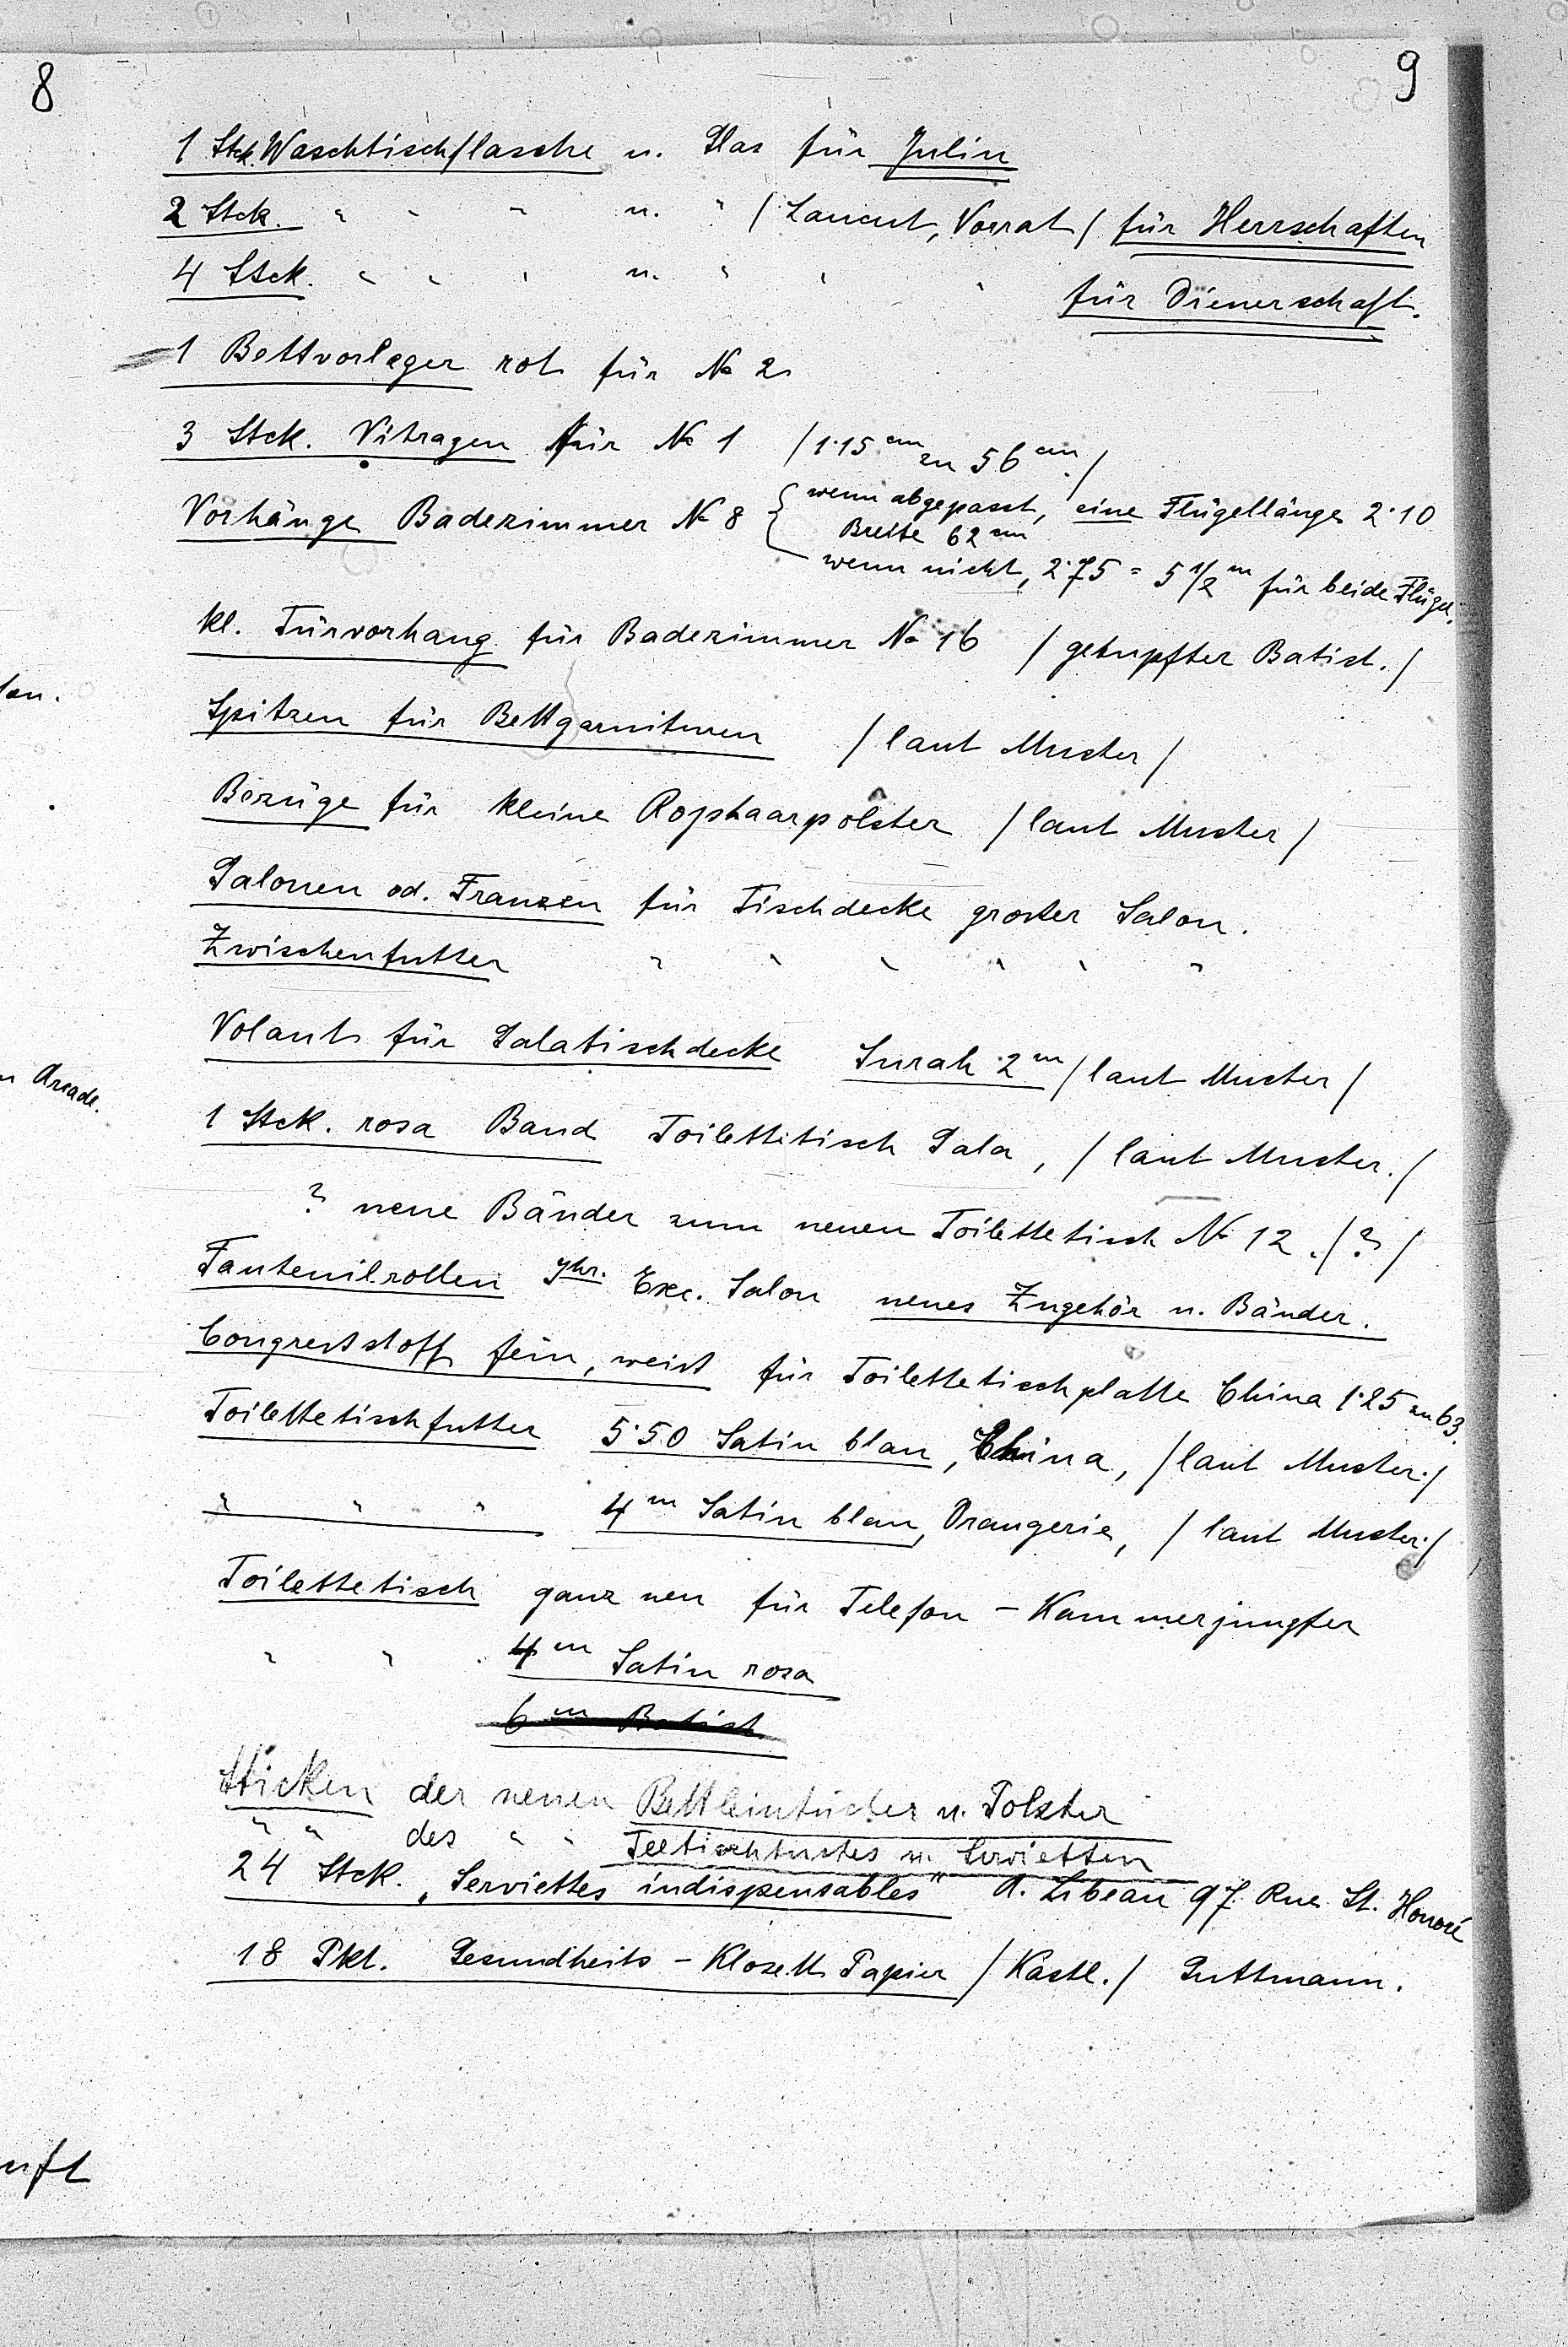 8
9
1 Stck. Waschtischflasche u. Glas für Julin
2 Stck. " " " u. " / Lancut, Vorrat / für Herrschaften
4 Stck. " " " u. " " "
für Dienerschaft.
1 Bettvorleger rot für No 2
3 Stck. Vitragen für No 1 / 1·15 cm zu 56 cm /
Vorhänge Badezimmer No 8 { wenn abgepasst, eine Flügellänge 2·10
Breite 62 cm
wenn nicht, 2·75 = 5 1/2 m für beide Flügel.
kl. Türvorhang für Badezimmer No 16 / getupfter Batist. /
Spitzen für Bettgarnituren / laut Muster /
Bezüge für kleine Rosshaarpolster / laut Muster /
Galonen od. Franzen für Tischdecke grosser Salon.
Zwischenfutter " " " " " "
Volants für Galatischdecke Surah 2 m / laut Muster /
1 Stck. rosa Band Toilettetisch Gala, / laut Muster. /
? neue Bänder zum neuen Toilettetisch No 12. / ? /
Fauteuilrollen Ihr. Exc. Salon neues Zugehör u. Bänder.
Congressstoff fein, weiss für Toilettetischplatte China 1·25 zu 63.
Toilettetischfutter 5·50 Satin blau, China, / laut Muster. /
" " " 4 m Satin blau, Orangerie, / laut Muster. /
Toilettetisch ganz neu für Telefon - Kammerjungfer
" " . 4 m Satin rosa
6 m Batist
Sticken der neuen Bettleintücher u. Polster
" " des " " Teetischtuches u. Servietten
24 Stck. „Serviettes indispensables" A. Libeau 97 Rue St. Honoré
18 Pkt. Gesundheits - Klosett Papier / Kastl. / Guttmann.
Arcade.